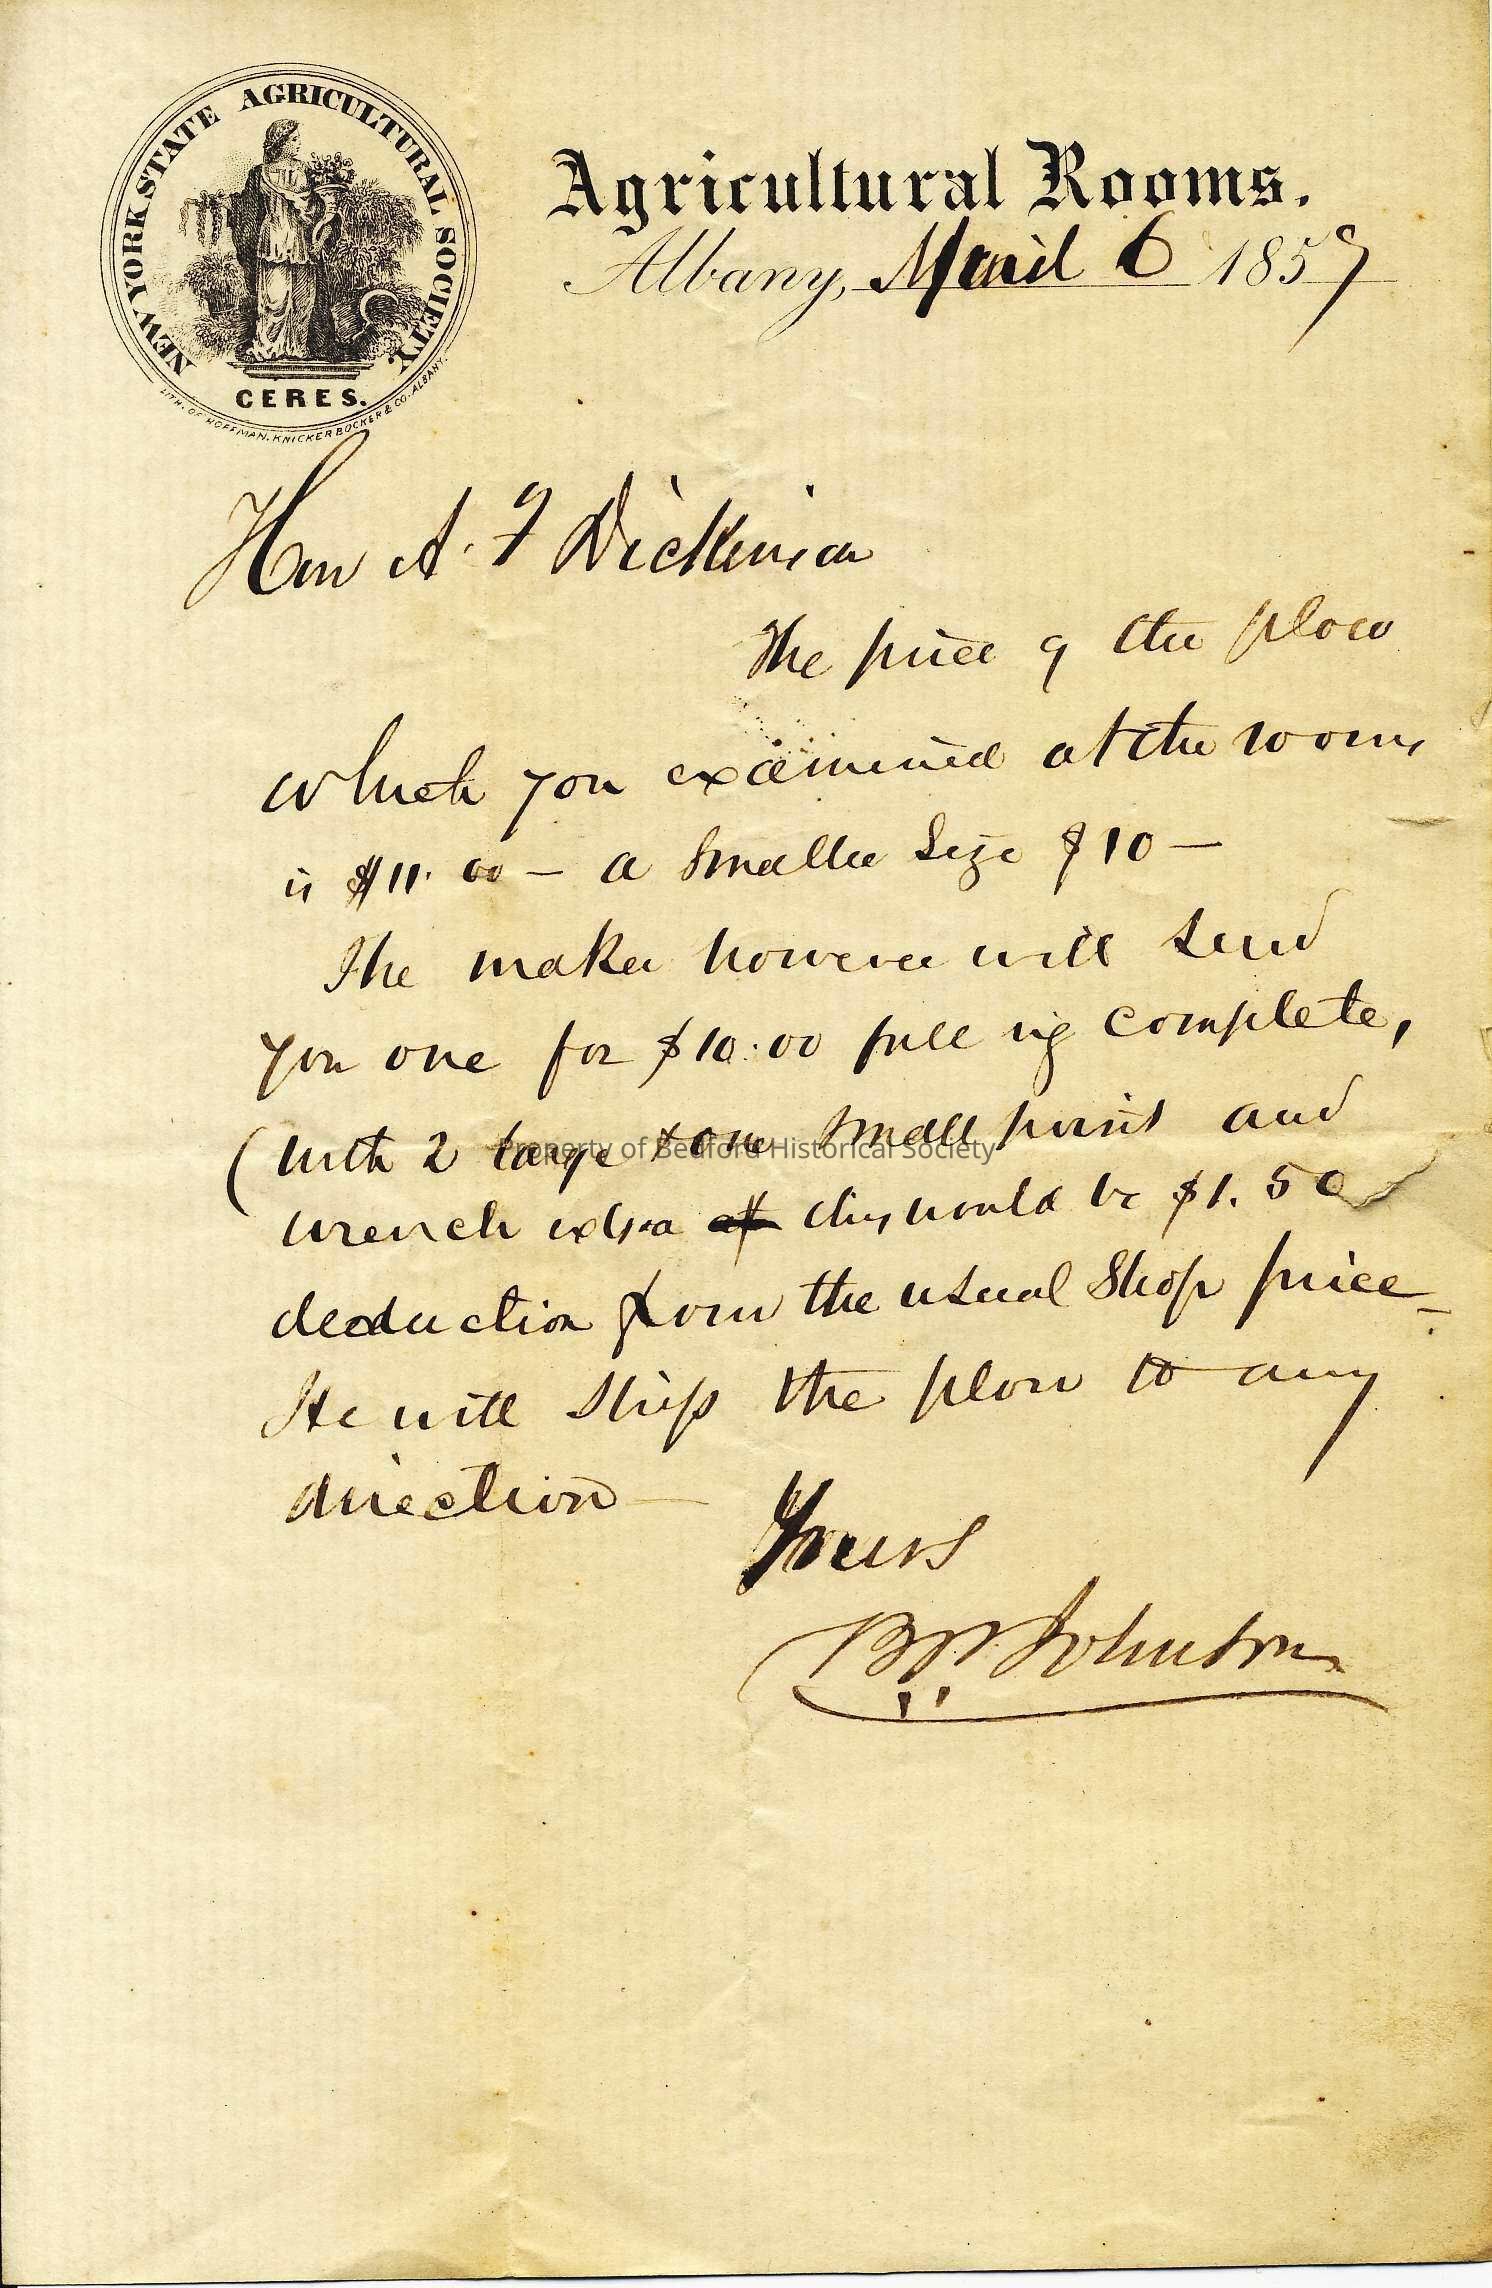 NEW YORK STATE AGRICULTURAL SOCIETY.
CERES.
LITH. OF HOFFMAN, KNICKERBOCKER & CO. ALBANY.
Agricultural Rooms.
Albany, April 6 1857
Hon A. F Dickinson
The price of the plow
which you examined at the rooms
is $11.00 — a smaller size $10 —
The maker however will send
you one for $10.00 full rig complete,
(with 2 large & one small point and
wrench extra this would be $1.50
deduction from the usual shop price —
He will ship the plow to any
direction —
Yours
B P. Johnson
Property of Bedford Historical Society